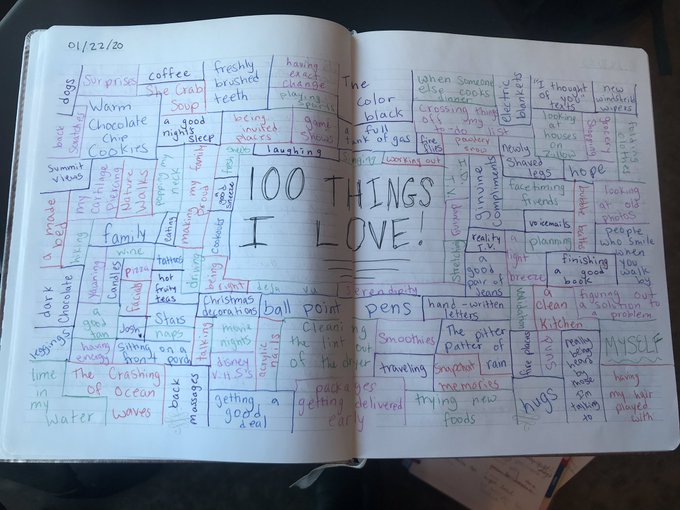 01/22/20
dogs
Surprises
coffee
freshly
brushed
teeth
having
exact
change
playing
sports
The
color
black
when someone
else cooks
dinner
electric
blankets
"I thought
of you"
texts
new
windshield
wipers
back
scratches
She Crab
Soup
Warm
Chocolate
Chip
Cookies
a good
nights
sleep
being
invited
places
game
shows
a full
tank of gas
crossing things
off my
to-do list
fire
pits
powdery
snow
looking
at
houses
on
Zillow
grocery
shopping
fresh
sheets
laughing
singing
working out
newly
Shaved
legs
hope
Summit
views
my
Cartilage
Piercing
Nature
Walks
popping my
neck
making my family
proud
good
sneeze
100 THINGS
I LOVE!
genuine
Compliments
facetiming
friends
bubble
baths
looking
at old
photos
a made
bed
family
eating
cookouts
driving
Stretching
reality
T.V.
voicemails
a
light
breeze
planning
people
who smile
when
you
walk
by
hiking
wine
tattoos
a
good
pair of
Jeans
finishing
a good
book
dark
Chocolate
Yawning
Candles
pizza
facials
hot
fruity
teas
being
right
deja vu
Serendipity
Christmas
decorations
ball point pens
hand-written
letters
a
clean
Kitchen
figuring out
a solution to
a problem
leggings
a
good
tan
Josh
Stars
naps
talking
movie
nights
acrylic
nails
Cleaning
the lint out
of the dryer
Smoothies
The pitter
Patter of
rain
fire places
really
being
heard
by
those
I'm
talking
to
MYSELF
having
energy
Sitting on a
front porch
disney
V.H.S.'s
traveling
Snapchat
memories
lime
in my
water
The Crashing
of Ocean
waves
back
massages
getting a
good
deal
packages
getting delivered
early
trying new
foods
hugs
having
my hair
played
with